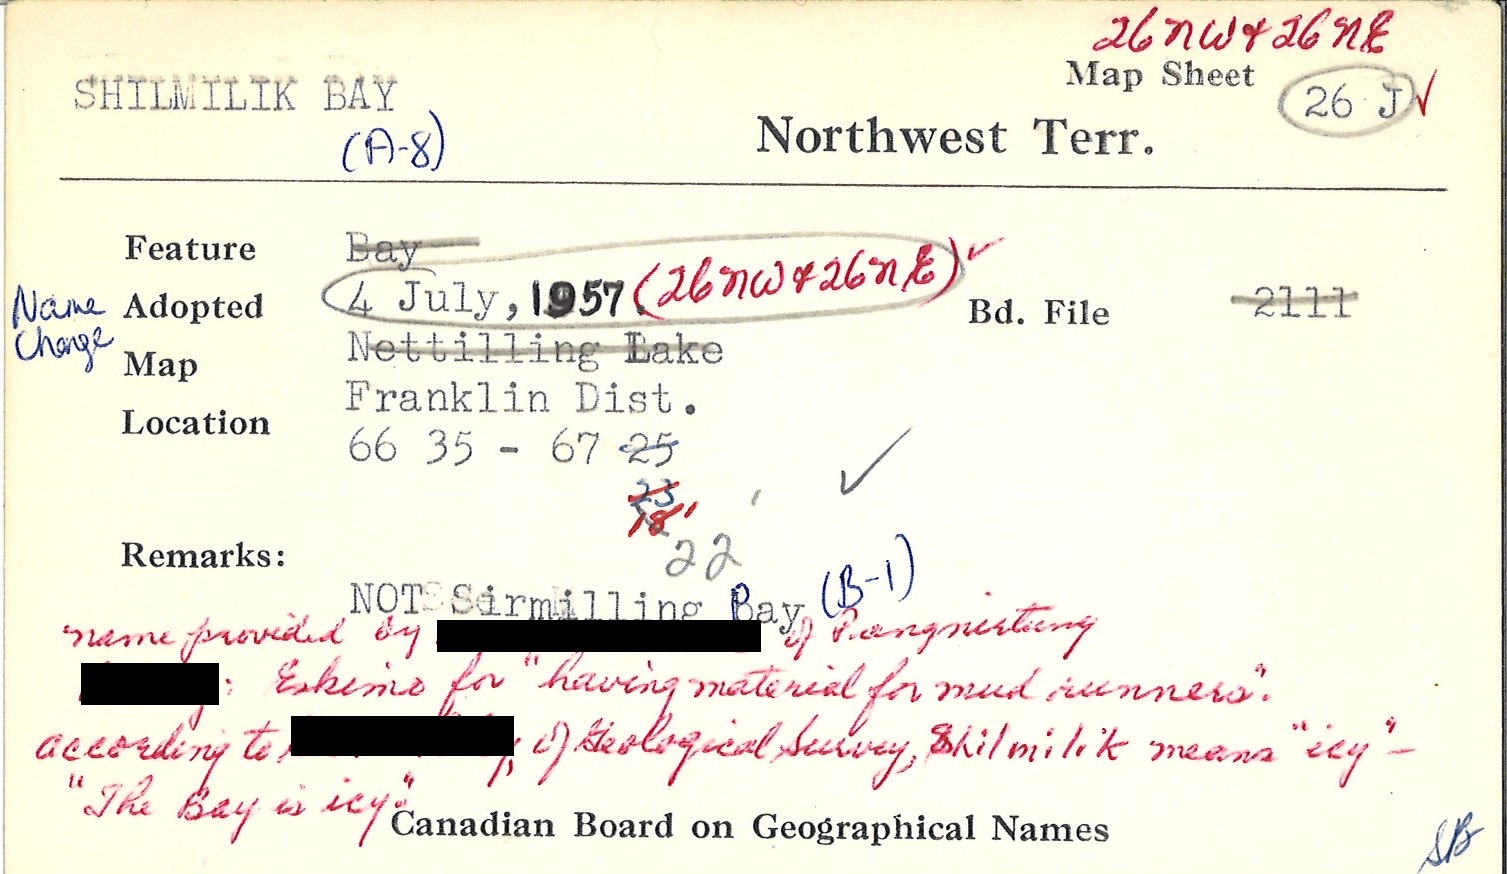 26 NW & 26 NE
Map Sheet 26 J ✓
SHILMILIK BAY
(A-8)
Northwest Terr.
Feature Bay
Name Change
Adopted 4 July, 1957. (26 NW & 26 NE) ✓
Bd. File 2111
Map Nettilling Lake
Franklin Dist.
Location 66 35 - 67 25
23
18'
22'
✓
Remarks:
NOT Sirmilling Bay (B-1)
name provided by of Pangnirtung
: Eskimo for "having material for mud runners".
according to , of Geological Survey, Shilmilik means "icy" –
"The Bay is icy".
Canadian Board on Geographical Names
SB